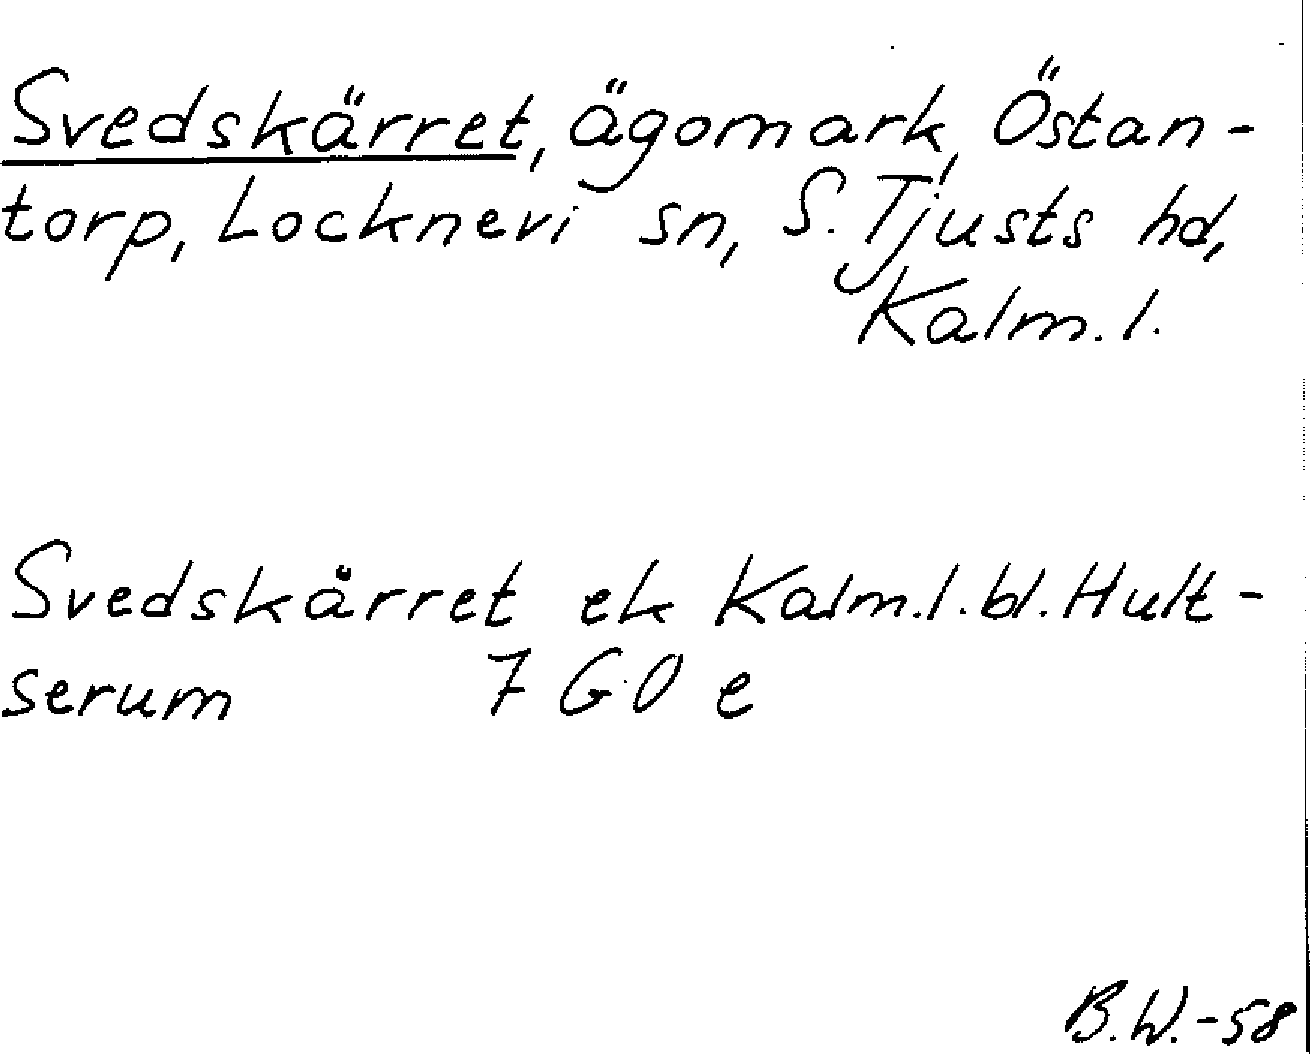 Svedskärret, ägomark, Östan-
torp, Locknevi sn, S. Tjusts hd,
Kalm. l.
Svedskärret ek Kalm. l. bl. Hult-
serum 7 G0 e
B.W.-58